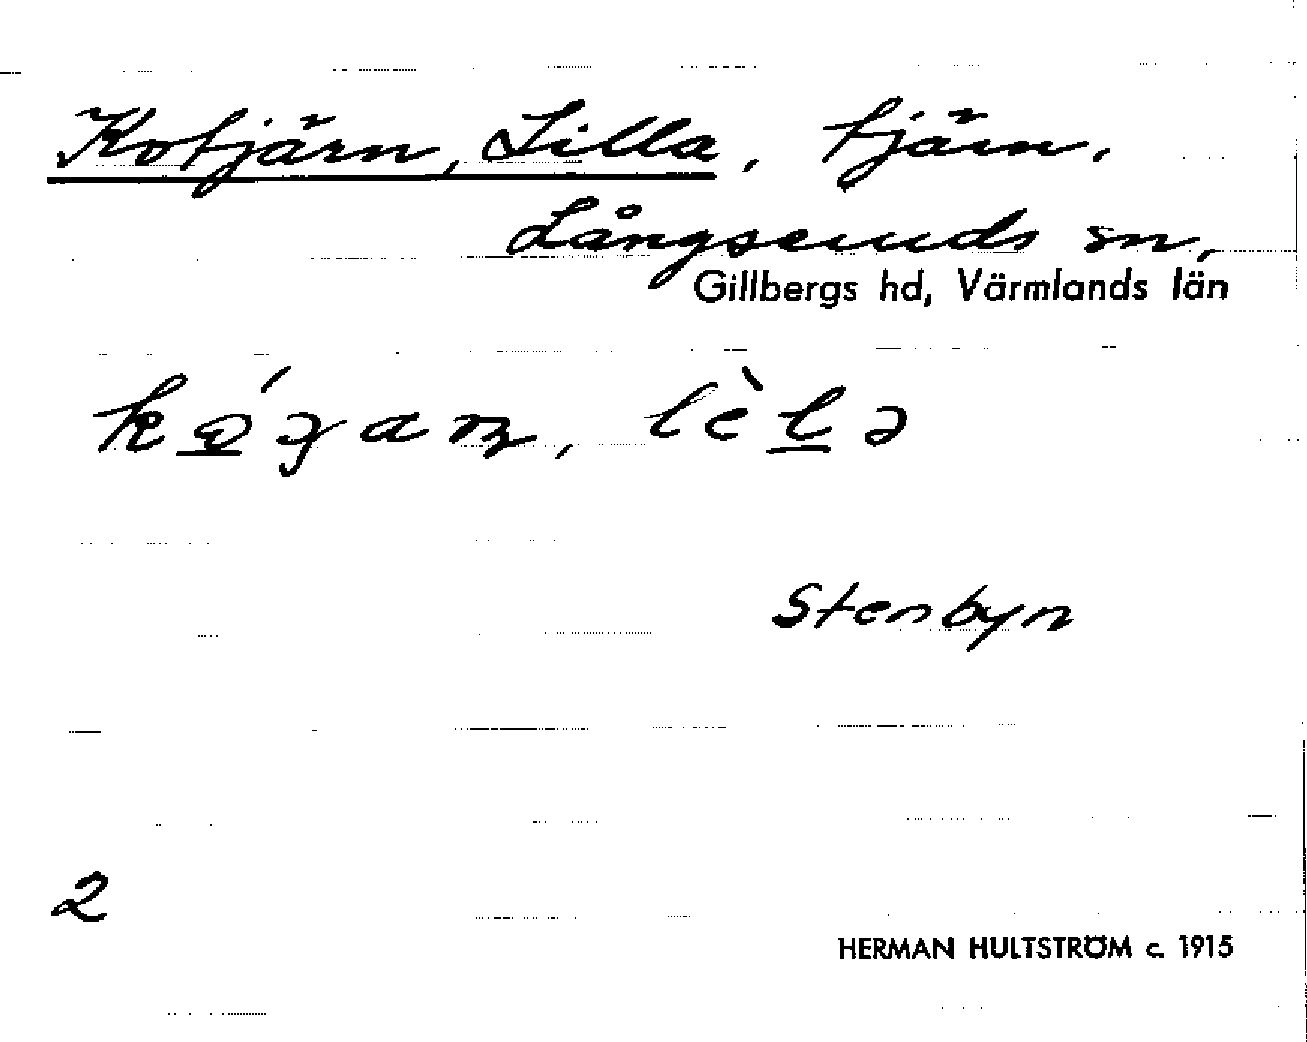 Kotjärn, Lilla, tjärn.
Långseruds sn,
Gillbergs hd, Värmlands län
Stenbyn
2
HERMAN HULTSTRÖM c. 1915